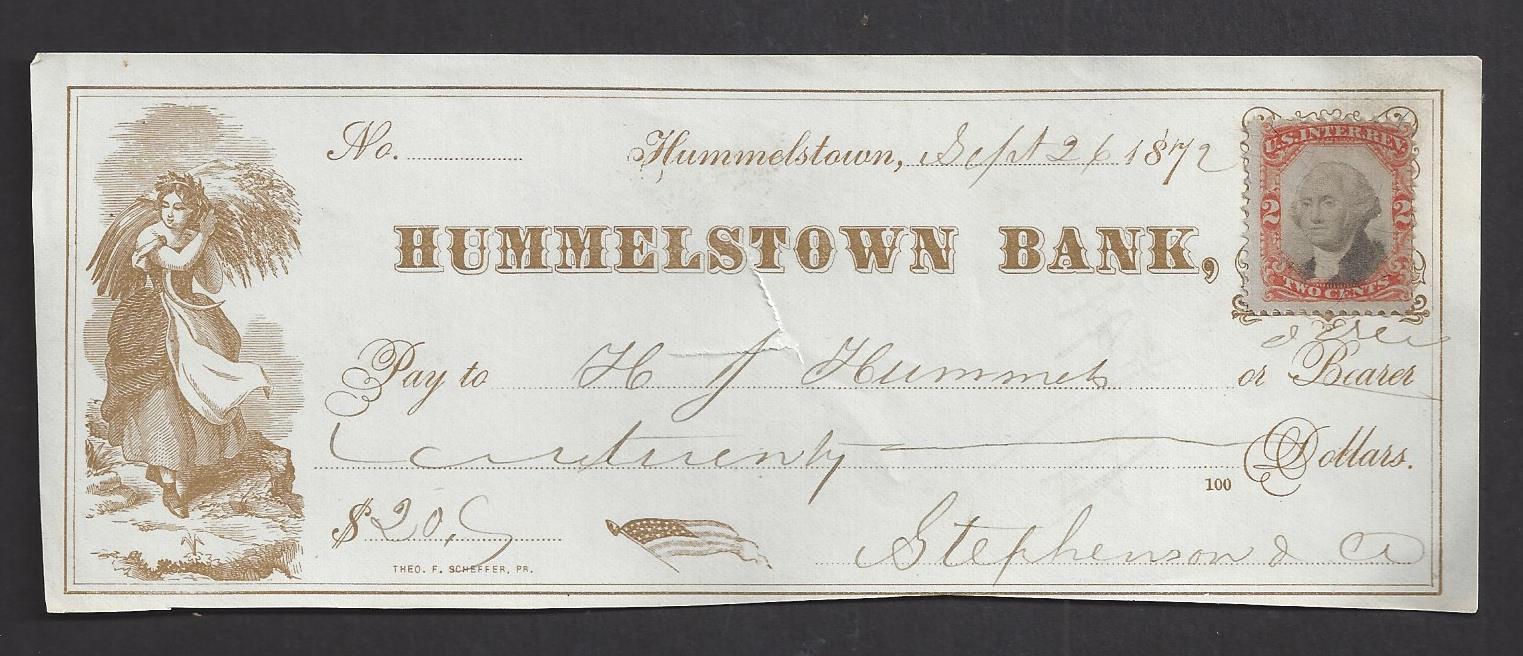 No. Hummelstown, Sept 26 1872
U.S. INTER. REV.
2 2
TWO CENTS
HUMMELSTOWN BANK,
Pay to H J Hummel or Bearer
twenty Dollars.
100
$ 20,
THEO. F. SCHEFFER, PR.
Stephenson & Co